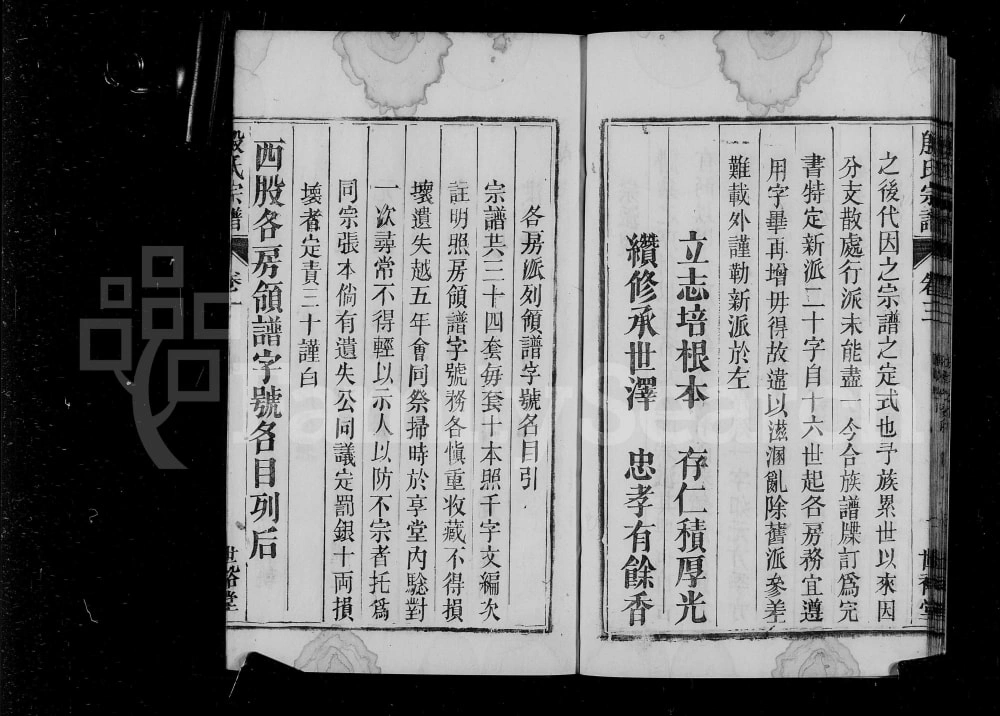 殷氏宗譜 卷三
之後代因之宗譜之定式也予族累世以來因
分支散處行派未能盡一今合族譜牒訂爲完
書特定新派二十字自十六世起各房務宜遵
用字畢再增毋得故違以滋溷亂除舊派參差
難載外謹勒新派於左
立志培根本 存仁積厚光
纘修承世澤 忠孝有餘香
各房派列領譜字號名目引
宗譜共二十四套每套十本照千字文編次
註明照房領譜字號務各慎重收藏不得損
壞遺失越五年會同祭掃時於享堂內騐對
一次尋常不得輕以示人以防不宗者托爲
同宗張本倘有遺失公同議定罰銀十両損
壞者定責三十謹白
西股各房領譜字號名目列后
殷氏宗譜 卷
世裕堂
FamilySearch